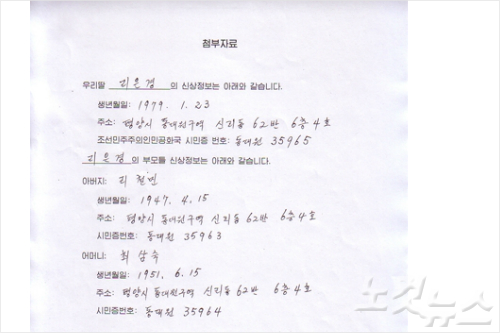 첨부자료
우리딸 리은경 의 신상정보는 아래와 같습니다.
생년월일: 1979. 1. 23
주소: 평양시 동대원구역 신리동 62반 6층 4호
조선민주주의인민공화국 시민증 번호: 동대원 35965
리은경 의 부모들 신상정보는 아래와 같습니다.
아버지: 리
생년월일: 1947. 4. 15
주소: 평양시 동대원구역 신리동 62반 6층 4호
시민증번호: 동대원 35963
어머니: 최삼숙
생년월일: 1951. 6. 15
주소: 평양시 동대원구역 신리동 62반 6층 4호
시민증번호: 동대원 35964
노컷뉴스